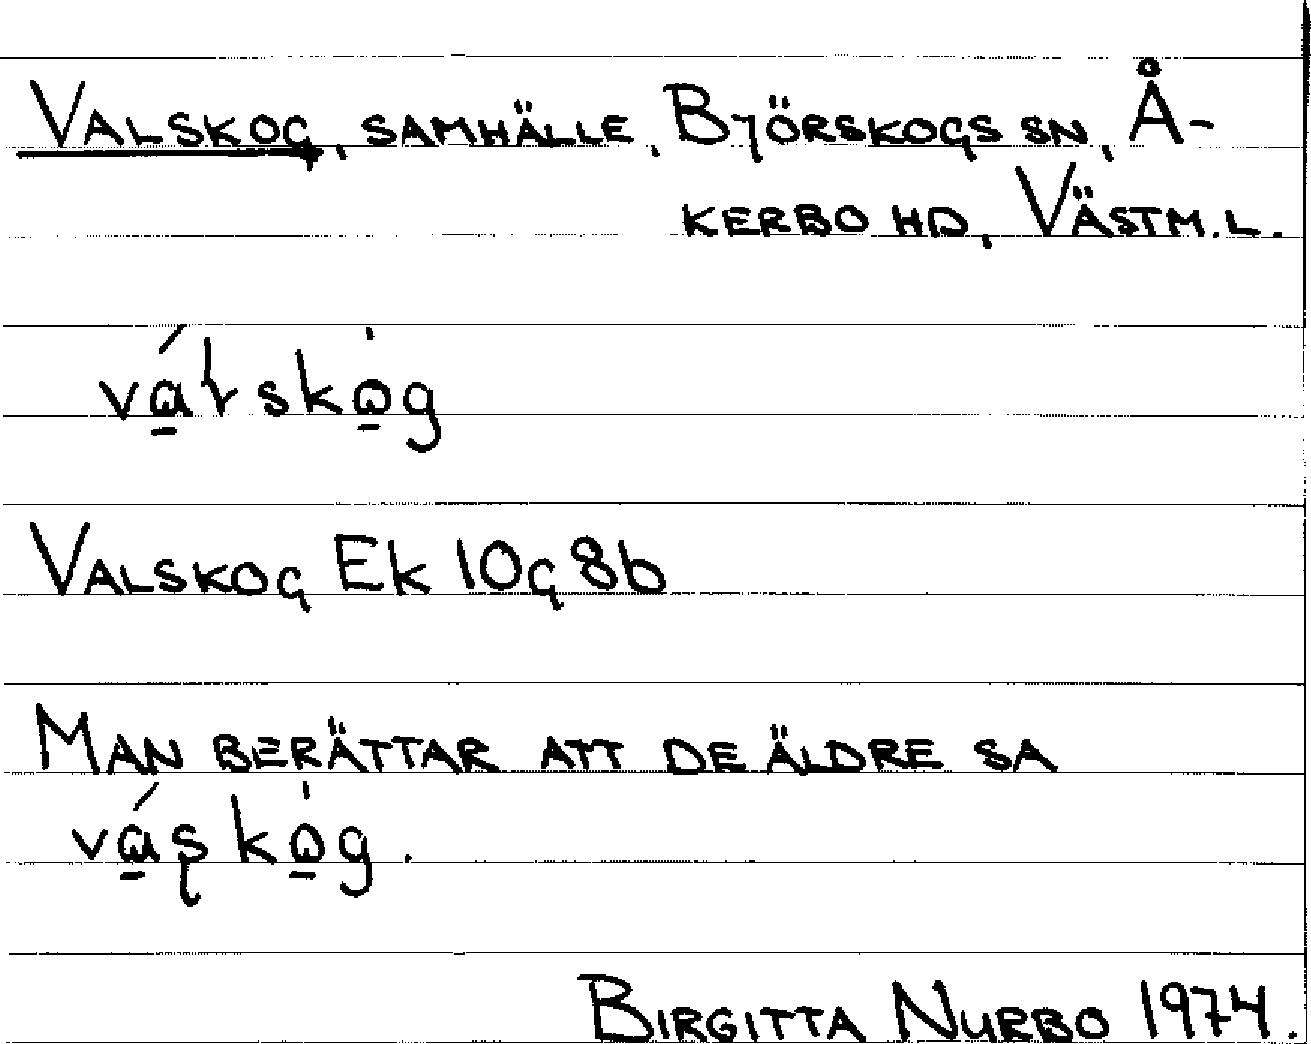 Valskog, samhälle, Björskogs sn, Å-
kerbo hd, Västm. l.
vá̱ɽskò̱g
Valskog Ek 10g 8b
Man berättar att de äldre sa
vá̱ʂkò̱g.
Birgitta Nurbo 1974.